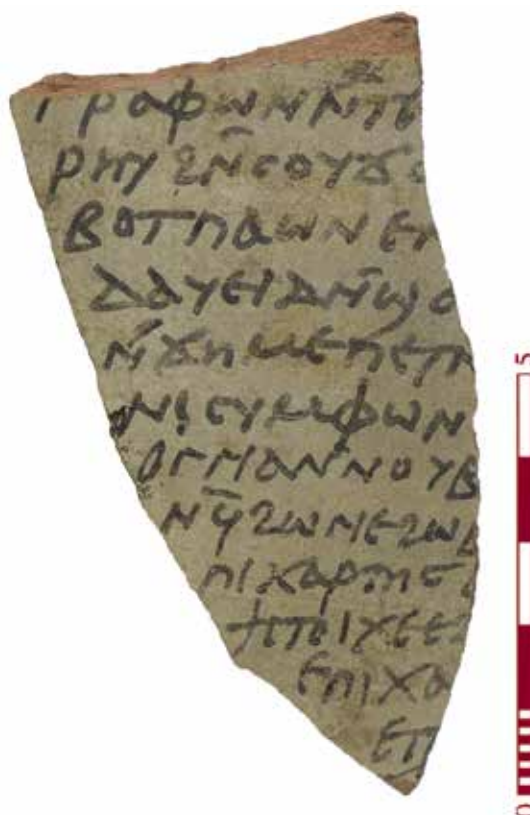 ⲅⲣⲁⲫⲱⲛ ⲛ̄ⲧ
ⲣⲏⲩ ϩⲛ̄ⲥⲟⲩϫⲟ
ⲃⲟⲧ ⲡⲁⲱⲛⲉ
ⲇⲁⲩⲉⲓⲇ ⲛ̄ϣⲟ
ⲛ̄ϫⲏⲙⲉ ⲡⲉⲧⲛ
ⲛⲓⲥⲩⲙⲫⲱⲛ
ⲟⲅⲙⲁ ⲛ̄ⲛⲟⲩⲃ
ⲛϥ̄ϩⲱⲛ ⲉϩⲱⲃ
ⲡⲓⲭⲁⲣⲧⲏⲥ
ϯⲥⲧⲓⲭⲉ ⲉ
ⲉⲡⲓⲭⲁ
ⲉⲡ
5
0